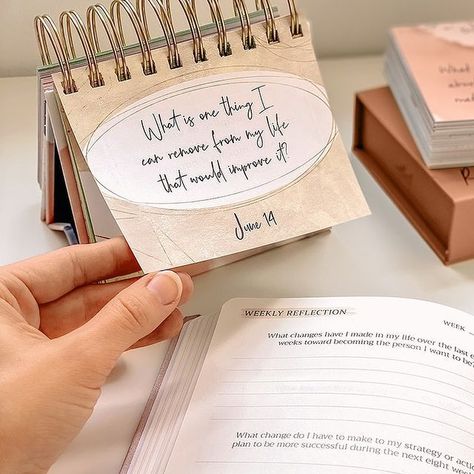 What is one thing I
can remove from my life
that would improve it?
June 14
What
WEEKLY REFLECTION
WEEK
What changes have I made in my life over the last e
weeks toward becoming the person I want to be?
What change do I have to make to my strategy or acti
plan to be more successful during the next eight week